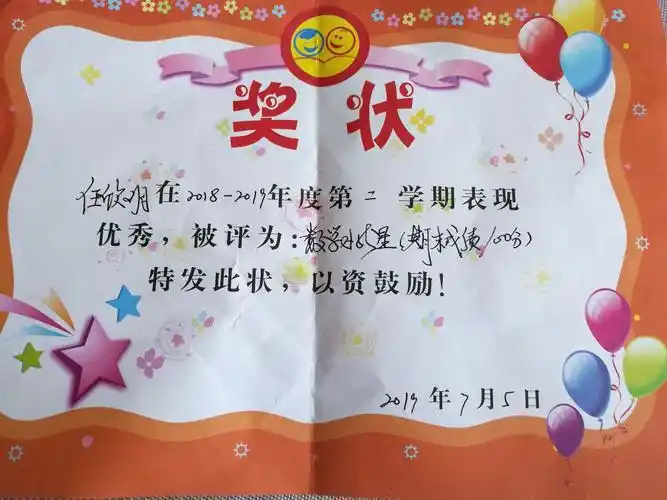 奖状
任欣明在2018-2019年度第二学期表现
优秀，被评为：数学小状星（期末成绩100分）
特发此状，以资鼓励！
2019年7月5日